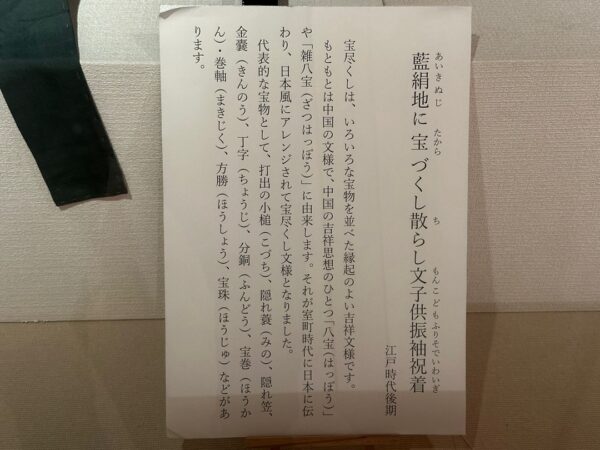 藍絹地に 宝 づくし散らし文子供振袖祝着
あいきぬじ たから ち もんこどもふりそでいわいぎ
江戸時代後期
宝尽くしは、いろいろな宝物を並べた縁起のよい吉祥文様です。
もともとは中国の文様で、中国の吉祥思想のひとつ「八宝(はっぽう)」
や「雑八宝(ざつはっぽう)」に由来します。それが室町時代に日本に伝
わり、日本風にアレンジされて宝尽くし文様となりました。
代表的な宝物として、打出の小槌(こづち)、隠れ蓑(みの)、隠れ笠、
金嚢(きんのう)、丁字(ちょうじ)、分銅(ふんどう)、宝巻(ほうか
ん)・巻軸(まきじく)、方勝(ほうしょう)、宝珠(ほうじゅ)などがあ
ります。